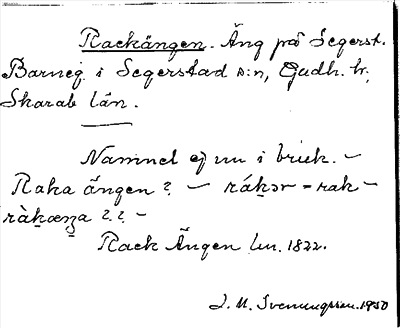 Rackängen. Äng på Segerst.
Barneg. i Segerstad s:n, Gudh. hr,
Skarab län.
Namnet ej nu i bruk. –
Raka ängen? – rákər = rak –
ràkæŋa ? ? –
Rack Ängen lm. 1822.
J. M. Svenungsson. 1930